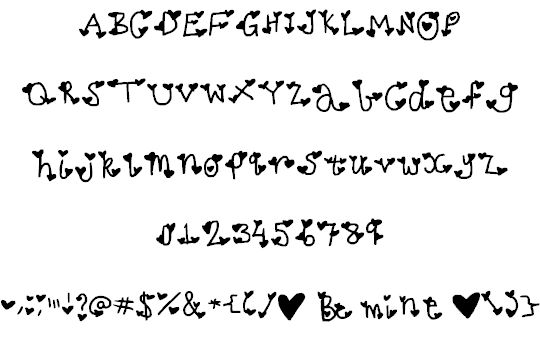 ABCDEFGHIJKLMNOP
QRSTUVWXYZabcdefg
hijklmnopqrstuvwxyz
0123456789
,.;:"'!?@#$%&*{(/♥ Be mine ♥\)}